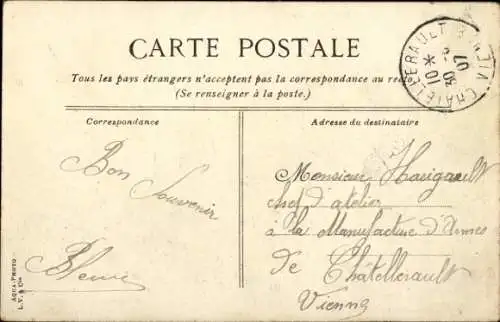 CARTE POSTALE
Tous les pays étrangers n'acceptent pas la correspondance au recto
(Se renseigner à la poste.)
Correspondance
Bon
Souvenir
Adresse du destinataire
Monsieur
chef d'atelier
à la Manufacture d'Armes
de Châtellerault
Vienne
CHATELLERAULT
VIENNE
07
AQUA-PHOTO
L. V. & Cie